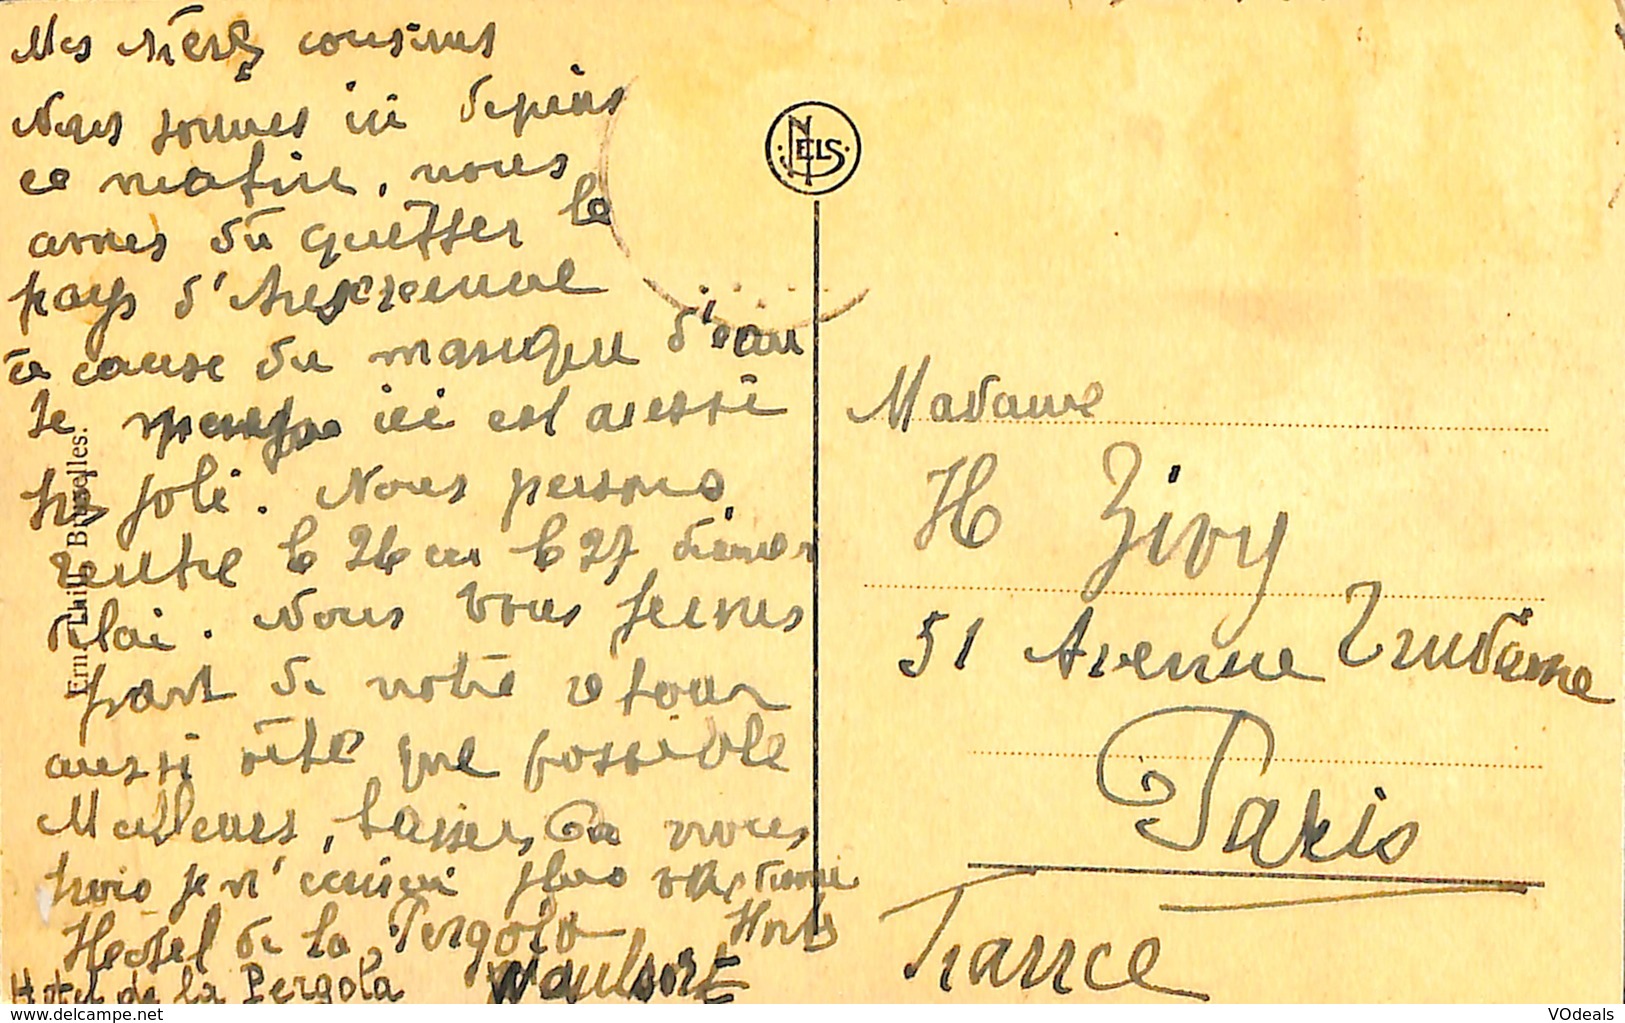 Mes chères cousines
Nous sommes ici depuis
ce matin, nous
avons dû quitter le
pays d'Ardenne
à cause du manque d'eau
Le ici est aussi
très joli. Nous pensons
rentré le 26 ou le 27 dernier
délai. Nous vous ferons
part de notre retour
aussi vite que possible
Meilleurs baisers a vous
trois je n'écrirai plus
Hotel de la Pergola
Hotel de la Pergola Waulsort
Ern. Thill, Bruxelles.
NELS
Madame
H Zivy
51 Avenue Trudaine
Paris
France
www.delcampe.net
VOdeals